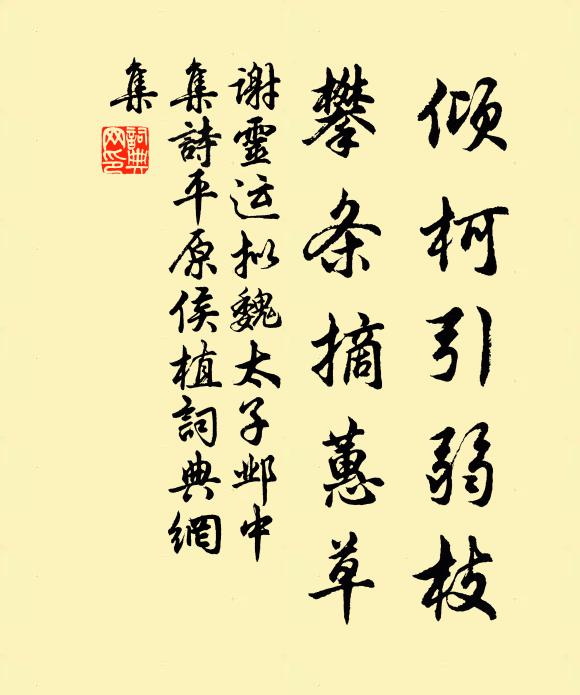 倾柯引弱枝
攀条摘蕙草
谢灵运拟魏太子邺中
集詩平原侯植詞典網
集
詞典网印